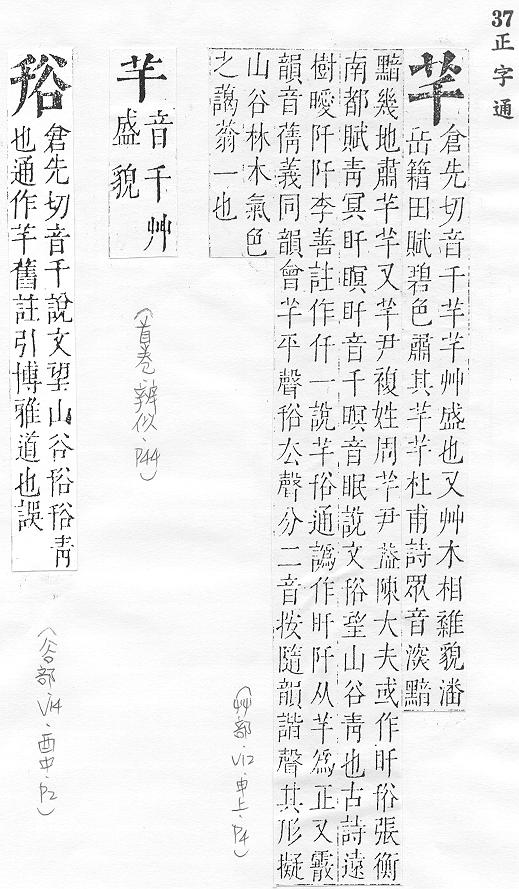 37 正字通
芊
倉先切音千芊芊艸盛也又艸木相雜貌潘
岳籍田賦碧色肅其芊芊杜甫詩眾音深黯
黯幾地肅芊芊又芊尹複姓周芊尹葢陳大夫或作盰谸張衡
南都賦青冥盰瞑盰音千瞑音眠說文谸望山谷青也古詩遠
樹曖阡阡李善註作仟一說芊谸通譌作盰阡从芊為正又霰
韻音蒨義同韻會芊平聲谸去聲分二音按隨韻諧聲其形擬
山谷林木氣色
之藹蓊一也
(艸部、V12、申上、P4)
芊
音千艸
盛貌
(首卷辨似、P44)
谸
倉先切音千說文望山谷谸谸青
也通作芊舊註引博雅道也誤
(谷部、V14、酉中、P2)